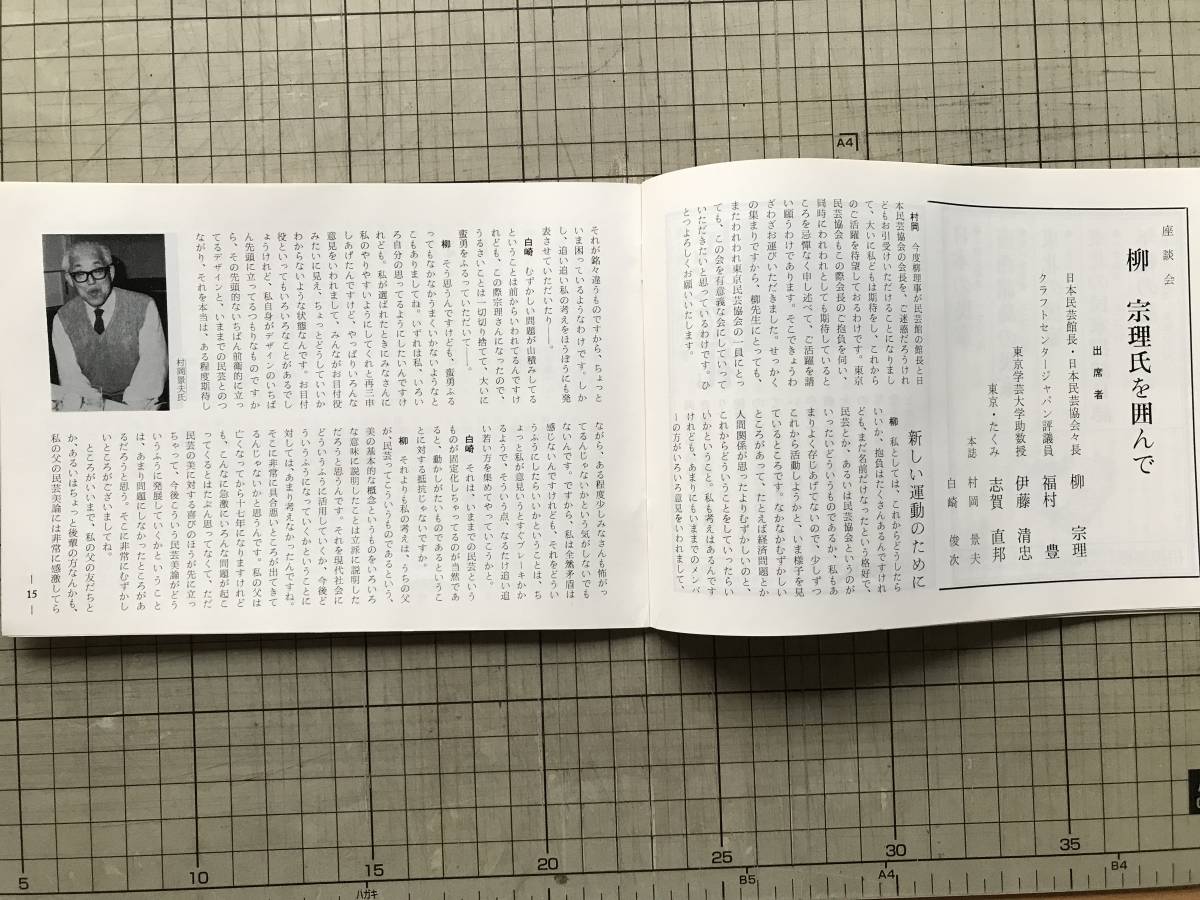 座談会
柳 宗理氏を囲んで
出席者
日本民芸館長・日本民芸協会々長 柳 宗理
クラフトセンタージャパン評議員 福村 豊
東京学芸大学助数授 伊藤 清忠
東京・たくみ 志賀 直邦
本誌 村岡 景夫
白崎 俊次
村岡 今度柳理事が民芸館の館長と日
本民芸協会の会長を、ご迷惑だろうけれ
どもお引受けいただけることになりまし
て、大いに私どもは期待をし、これから
のご活躍を待望しておるわけです。東京
民芸協会もこの際会長のご抱負を伺い、
同時にわれわれとしても期待していると
ころを忌憚なく申し述べて、ご活躍を請
い願うわけであります。そこできょうわ
ざわざお運びいただきました。せっかく
の集まりですから、柳先生にとっても、
またわれわれ東京民芸協会の一員にとっ
ても、この会を有意義な会にしていって
いただきたいと思っているわけです。ひ
とつよろしくお願いいたします。
新しい運動のために
柳 私としては、これからどうしたら
いいか、抱負はたくさんあるんですけれ
ども、まだ名前だけなったという格好で、
民芸とか、あるいは民芸協会というのが
いったいどういうものであるか、私もあ
まりよく存じあげてないので、少しずつ
これから活動しようかと、いま様子を見
ているところです。なかなかむずかしい
ところがあって、たとえば経済問題とか
人間関係が思ったよりむずかしいのと、
これからどういうことをしていったらい
いかということ。私も考えはあるんです
けれども、あまりにもいままでのメンバ
ーの方がいろいろ意見をいわれまして、
それが銘々違うものですから、ちょっと
いま困っているようなわけです。しか
し、追い追い私の考えをほうぼうにも発
表させていただいたり――。
白崎 むずかしい問題が山積みしてる
ということは前からいわれてるんですけ
れども、この際宗理さんになったので、
うるさいことは一切切り捨てて、大いに
蛮勇をふるっていただいて――。
柳 そう思うんですけども、蛮勇ふる
ってもなかなかうまくいかないようなと
こもありましてね。いずれは私、いろい
ろ自分の思ってるようにしたいんですけ
れども。私が選ばれたときにみなさんに
私のやりやすいようにしてくれと再三申
しあげたんですけど、やっぱりいろんな
意見をいわれまして、みんながお目付役
みたいに見え、ちょっとどうしていいか
わからないような状態なんです。お目付
役といってもいろいろなことがあるでし
ょうけれど、私自身がデザインのいちば
ん先頭に立ってるつもりなものですか
ら、その先頭的ないちばん前衛的に立っ
てるデザインと、いままでの民芸とのつ
ながり、それを本当は、ある程度期待し
村岡景夫氏
ながら、ある程度少しみなさんも怖がっ
てるんじゃないかという気がしないでも
ないんです。ですから、私は全然矛盾は
感じないんですけれども、それをどうい
うふうにしたらいいかということは、ち
ょっと私が意見いうとすぐブレーキかか
るようで、そういう点、なるたけ追い追
い若い方を集めてやっていこうかと。
白崎 それは、いままでの民芸という
ものが固定化しちゃってるのが当然であ
ると、動かしがたいものであるというこ
とに対する抵抗じゃないですか。
柳 それよりも私の考えは、うちの父
が、民芸ってこういうものであるという、
美の基本的な概念というものをいろいろ
な意味に説明したことは立派に説明した
だろうと思うんです。それを現代社会に
どういうふうに活用していくか、今後ど
ういうふうになっていくかということに
対しては、あまり考えなかったんですね。
そこに非常に具合悪いところが出てきて
るんじゃないかと思うんです。私の父は
亡くなってから十七年になりますけれど
も、こんなに急激にいろんな問題が起こ
ってくるとはたぶん思ってなくて、ただ
民芸の美に対する喜びのほうが先に立っ
ちゃって、今後こういう民芸美論がどう
いうふうに発展していくかということ
は、あまり問題にしなかったところがあ
るだろうと思う。そこに非常にむずかし
いところがございまして。
ところがいいまで、私の父の友だちと
か、あるいはちょっと後輩の方なんかも、
私の父の民芸美論には非常に感激してら
― 15 ―
A4
5
10
15
20
25
30
35
ハガキ
B5
A4
B4